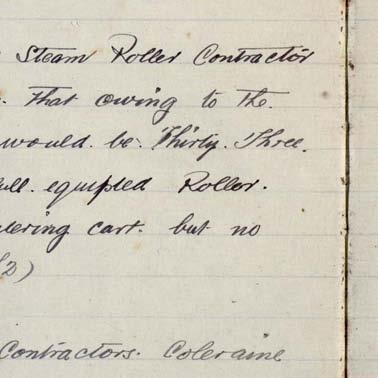 Steam Roller Contractor
. that owing to the.
would. be. Thirty. Three.
ull. equipted Roller.
tering cart. but no
/2)
Contractors. Coleraine